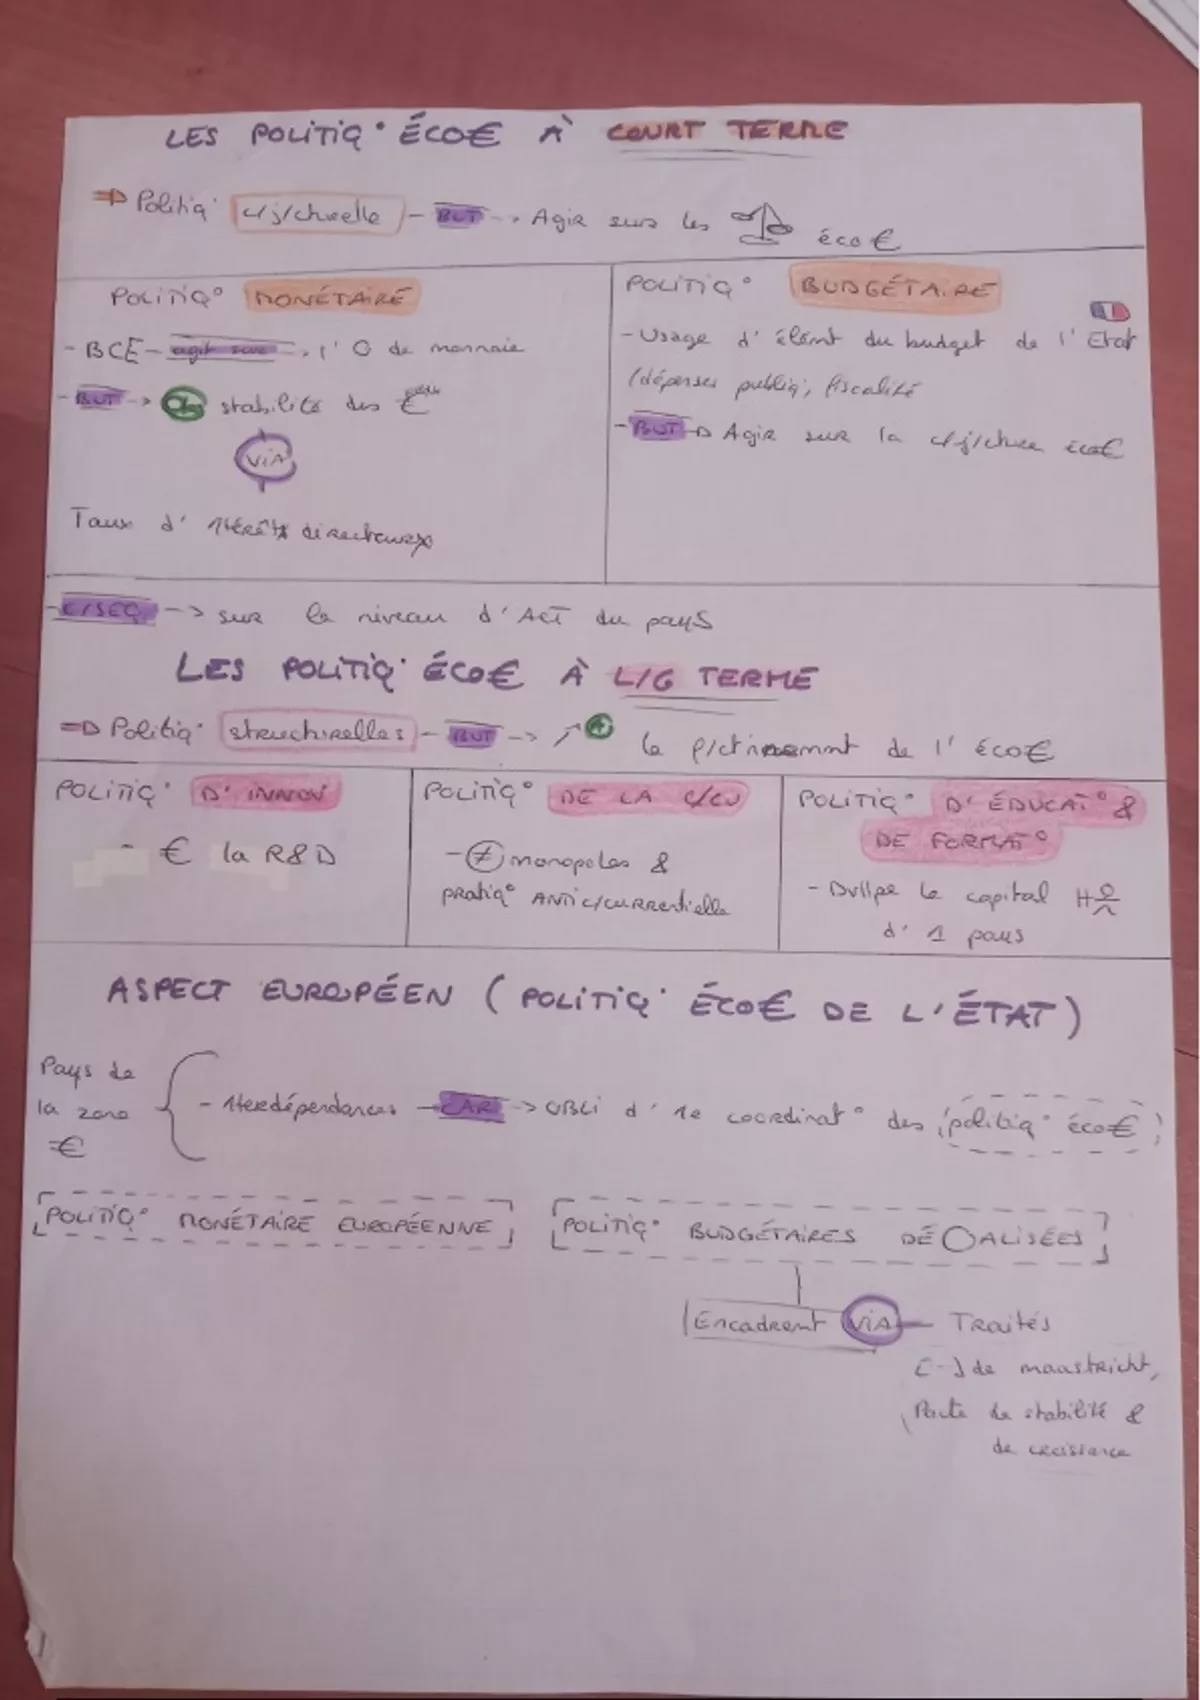 LES POLITIQ° ÉCO€ À COURT TERME
=> Politiq° c/j/cturelle - BUT -> Agir sur les éco€
POLITIQ° MONÉTAIRE
- BCE - agit sur -> l'O de monnaie
- BUT -> stabilité des €
VIA
Taux d' 1térêts directeurs
POLITIQ° BUDGÉTAIRE
- Usage d' élémt du budget de l' Etat
(dépenses publiq°, fiscalité
- BUT -> Agir sur la c/j/cture éco€
- C/SEQ -> sur le niveau d' ACT du pays
LES POLITIQ° ÉCO€ À L/G TERME
=> Politiq° structurelles - BUT -> ↗
le f/ctionnemnt de l' éco€
POLITIQ° D' INNOV
- € la R&D
POLITIQ° DE LA C/CU
- ≠ monopoles &
pratiq° ANTIC/CURRentielle
POLITIQ° D' ÉDUCAT° &
DE FORMAT°
- Dvllpe le capital H
d' 1 pays
ASPECT EUROPÉEN (POLITIQ° ÉCO€ DE L'ÉTAT)
Pays de
la zone
€
- 1terdépendances - CAR -> OBLI d' 1e coordinat° des politiq° éco€
POLITIQ° MONÉTAIRE EUROPÉENNE
POLITIQ° BUDGÉTAIRES DÉOALISÉES
Encadremt VIA - Traités
[-] de maastricht,
Pacte de stabilité &
de croissance